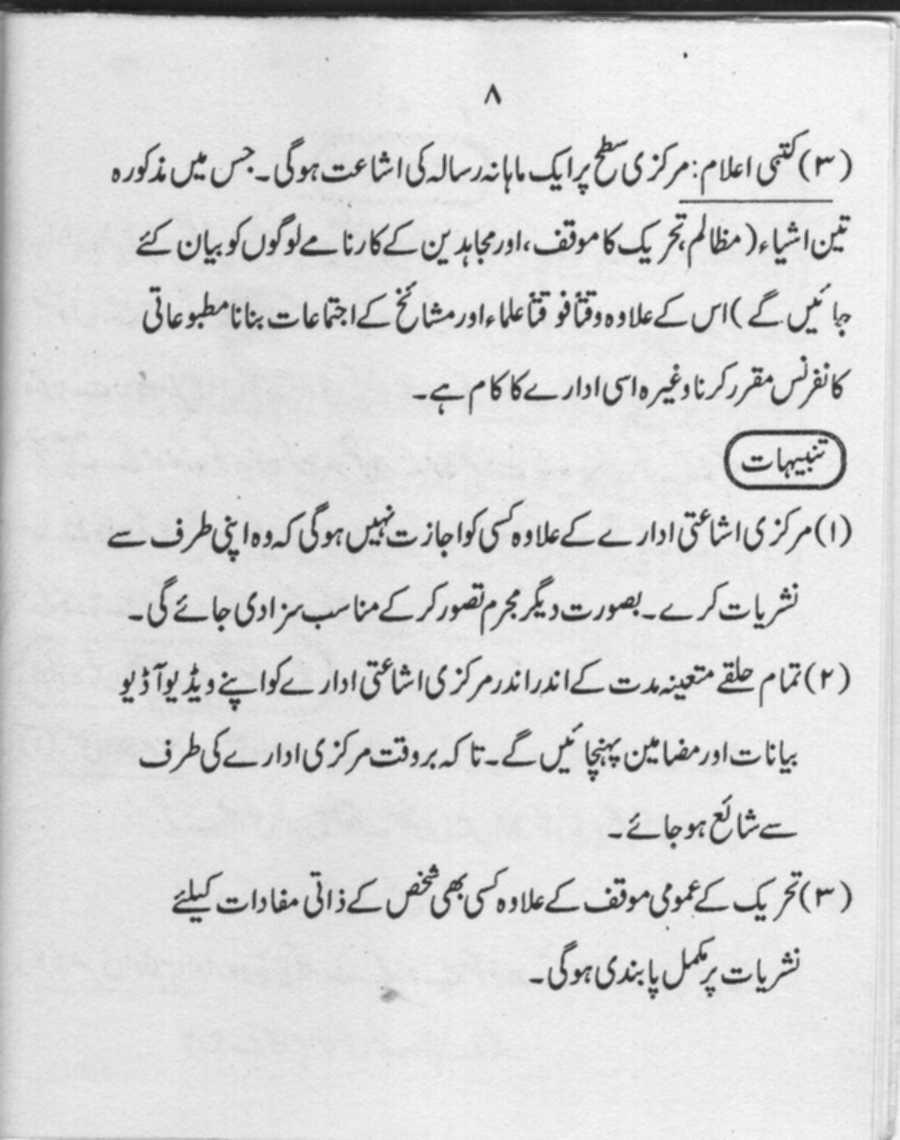 ۸
(۳) کتبی اعلام: مرکزی سطح پر ایک ماہانہ رسالہ کی اشاعت ہوگی۔ جس میں مذکورہ
تین اشیاء (مظالم، تحریک کا موقف، اور مجاہدین کے کارنامے لوگوں کو بیان کئے
جائیں گے) اس کے علاوہ وقتاً فوقتاً علماء اور مشائخ کے اجتماعات بنانا مطبوعاتی
کانفرنس مقرر کرنا وغیرہ اسی ادارے کا کام ہے۔
تنبیہات
(۱) مرکزی اشاعتی ادارے کے علاوہ کسی کو اجازت نہیں ہوگی کہ وہ اپنی طرف سے
نشریات کرے۔ بصورت دیگر مجرم تصور کر کے مناسب سزا دی جائے گی۔
(۲) تمام حلقے متعینہ مدت کے اندر اندر مرکزی اشاعتی ادارے کو اپنے ویڈیو آڈیو
بیانات اور مضامین پہنچائیں گے۔ تا کہ بروقت مرکزی ادارے کی طرف
سے شائع ہو جائے۔
(۳) تحریک کے عمومی موقف کے علاوہ کسی بھی شخص کے ذاتی مفادات کیلئے
نشریات پر مکمل پابندی ہوگی۔